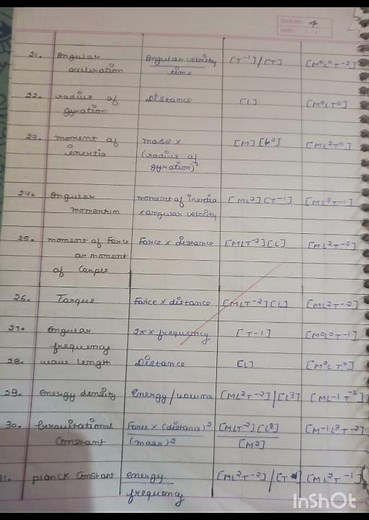 4
21. Angular acceleration | Angular velocity / time | [T⁻¹]/[T] | [M⁰L⁰T⁻²]
22. radius of gyration | Distance | [L] | [M⁰LT⁰]
23. moment of inertia | mass × (radius of gyration)² | [M] [L²] | [ML²T⁰]
24. Angular momentum | moment of inertia × angular velocity | [ML²][T⁻¹] | [ML²T⁻¹]
25. moment of Force or moment of Couple | Force × distance | [MLT⁻²][L] | [ML²T⁻²]
26. Torque | Force × distance | [MLT⁻²][L] | [ML²T⁻²]
27. Angular frequency | 2π × frequency | [T⁻¹] | [M⁰L⁰T⁻¹]
28. wave length | Distance | [L] | [M⁰LT⁰]
29. Energy density | Energy / | [ML²T⁻²]/[L³] | [ML⁻¹T⁻²]
30. Constant | Force × (distance)² / (mass)² | [MLT⁻²][L²] / [M²] | [M⁻¹L³T⁻²]
31. Planck Constant | energy / frequency | [ML²T⁻²]/[T⁻¹] | [ML²T⁻¹]
InShOt